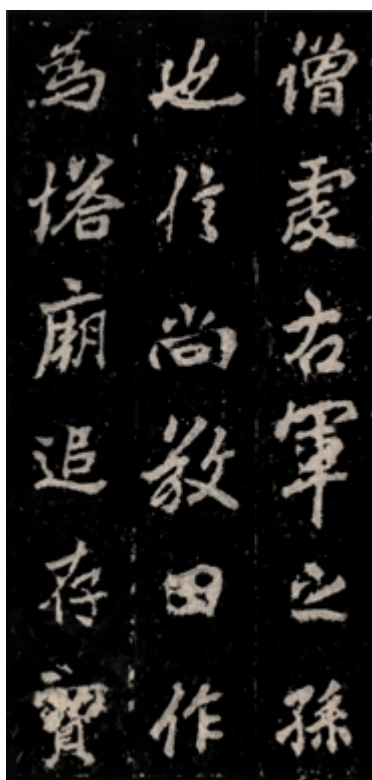 僧虔右軍之孫
也信尚教田作
為塔廟追存寶